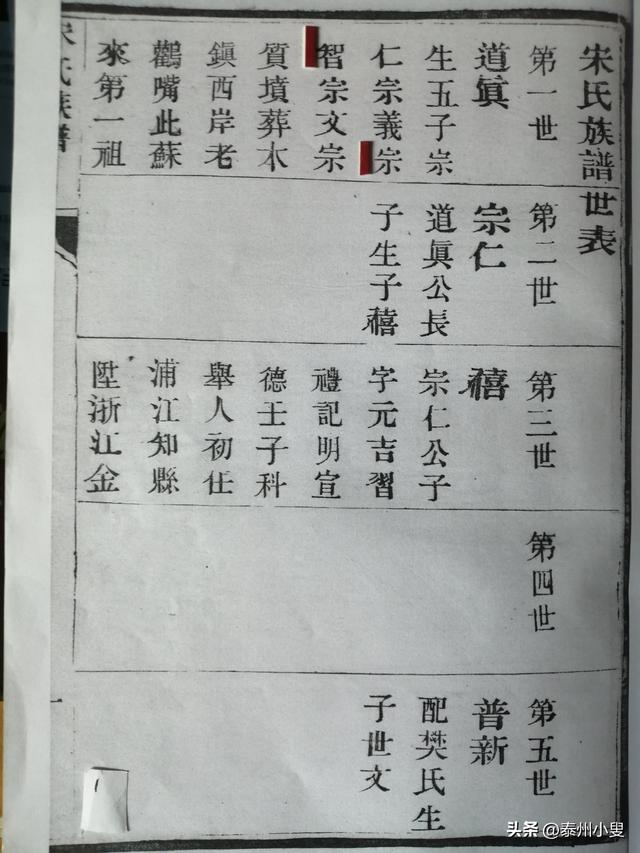 宋氏族譜世表
第一世
道眞
生五子宗
仁宗義宗
智宗文宗
質墳葬木
鎭西岸老
鸛嘴此蘇
來第一祖
第二世
宗仁
道眞公長
子生子禧
第三世
禧
宗仁公子
字元吉習
禮記明宣
德壬子科
舉人初任
浦江知縣
陞浙江金
第四世
第五世
普新
配樊氏生
子世文
宋氏族譜
一
1
头条 @泰州小叟